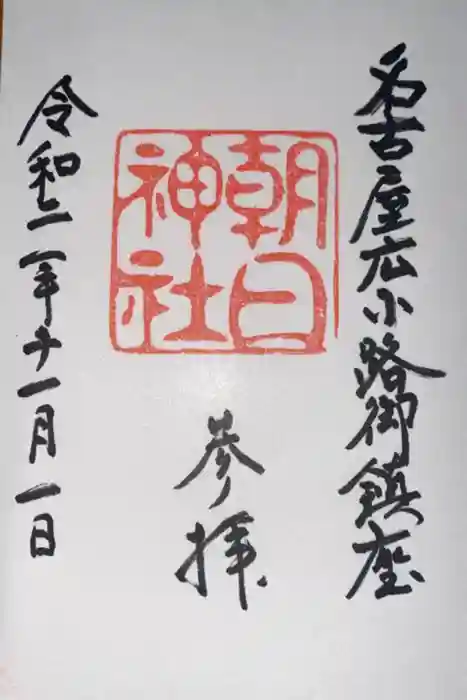 名古屋広小路御鎮座
朝日
神社
参拝
令和二年十一月一日